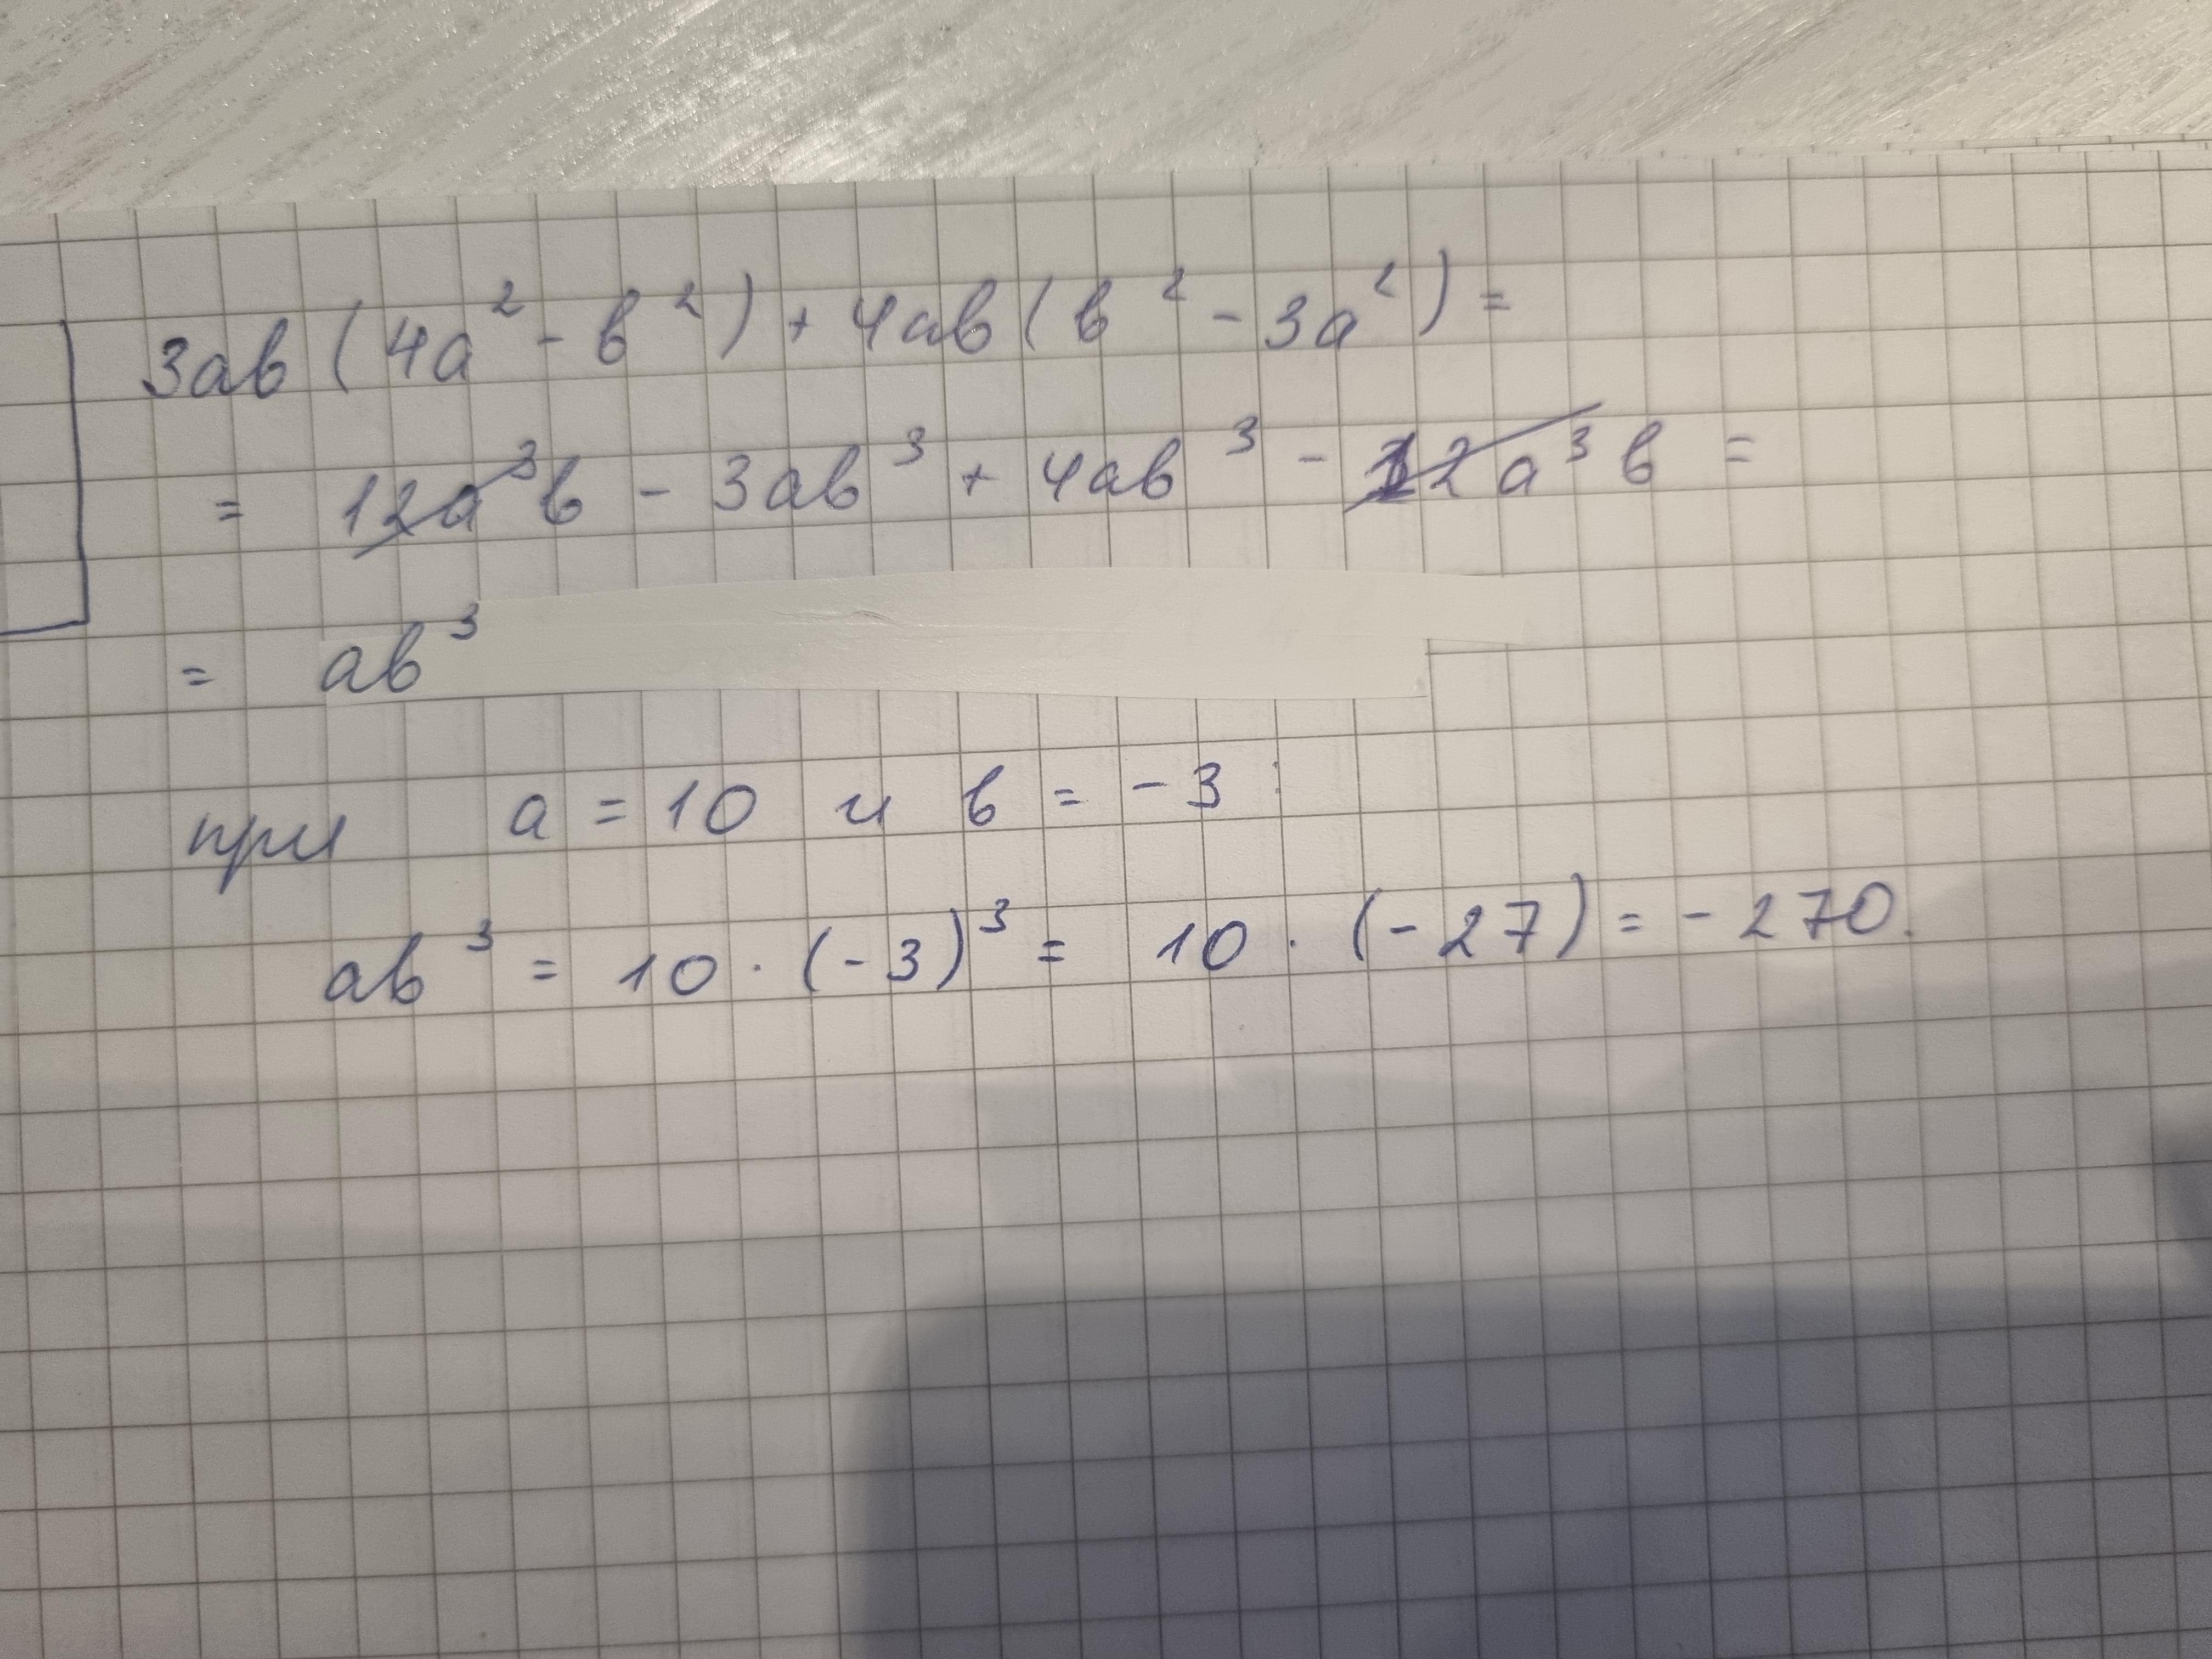 3ab(4a² - b²) + 4ab(b² - 3a²) =
= 12a³b - 3ab³ + 4ab³ - 12a³b =
= ab³
при a = 10 и b = -3:
ab³ = 10 · (-3)³ = 10 · (-27) = -270.